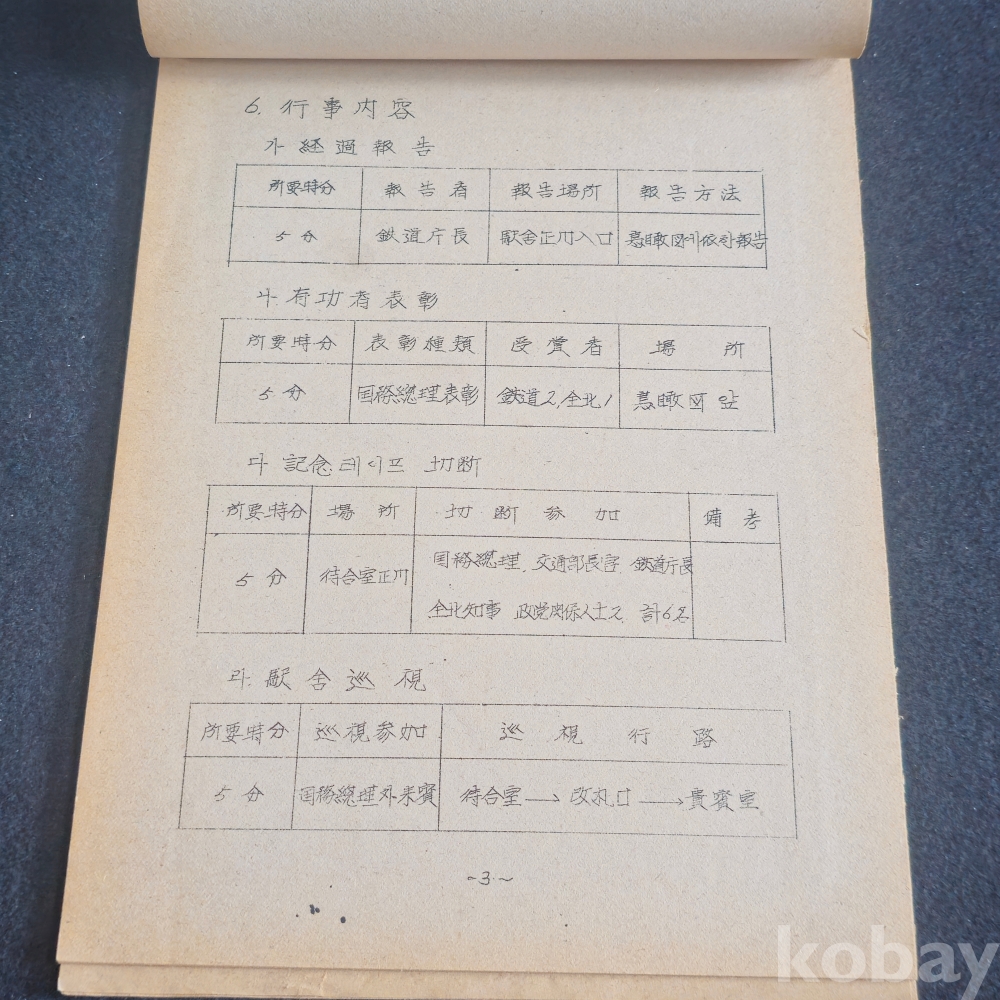 6. 行事內容
가 経過報告
所要時分 報告者 報告場所 報告方法
5分 鉄道庁長 駅舍正门入口 鳥瞰図에依한報告
나. 有功者表彰
所要時分 表彰種類 受賞者 場所
5分 国務總理表彰 鉄道2, 全北1 鳥瞰図앞
다 記念테이프 切断
所要時分 場所 切断参加 備考
5分 待合室正门 国務總理. 交通部長官. 鉄道庁長
全北知事 政党関係人士2 計6名
라. 駅舍巡視
所要時分 巡視参加 巡視行路
5分 国務總理外来賓 待合室→改札口→貴賓室
-3-
kobay